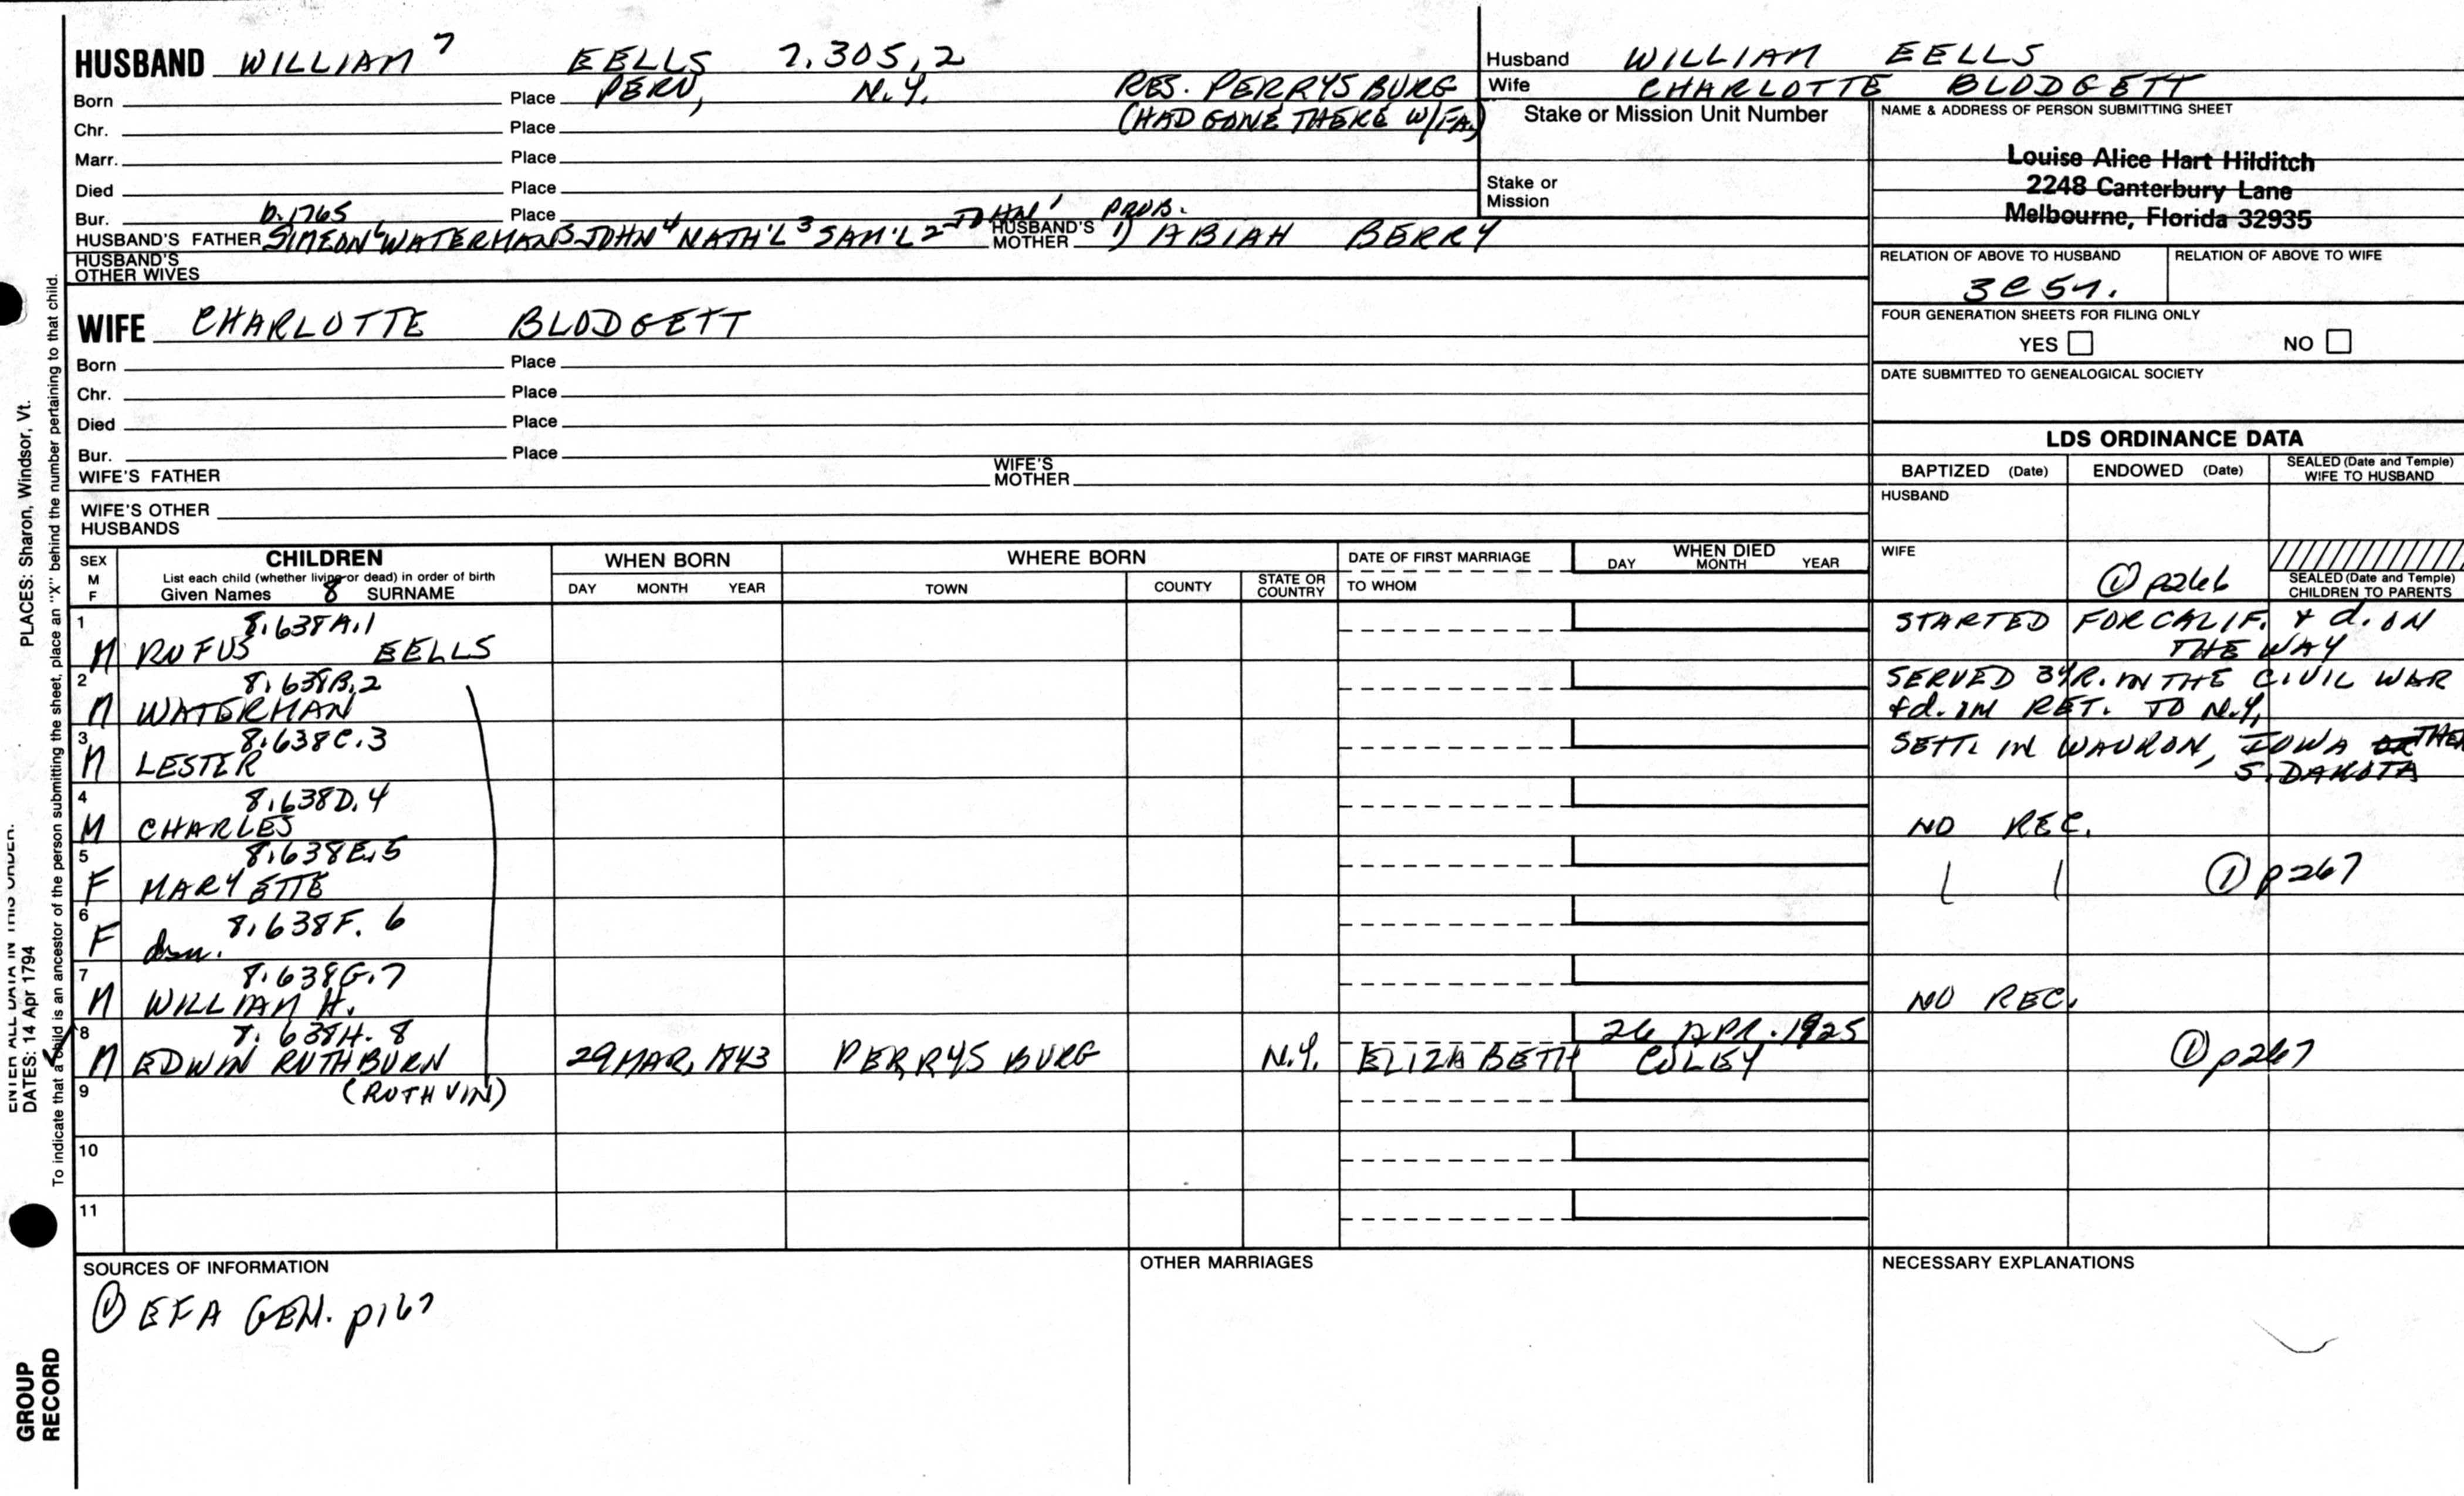 HUSBAND WILLIAM 7 EELLS 7.305.2
Born Place PERU, N.Y. RES. PERRYSBURG
Chr. Place (HAD GONE THERE W/FA.)
Marr. Place
Died Place
Bur. b.1765 Place
HUSBAND'S FATHER SIMEON 6 WATERMAN 5 JOHN 4 NATH'L 3 SAM'L 2 JOHN 1 HUSBAND'S MOTHER PROB. 1) ABIAH BERRY
HUSBAND'S
OTHER WIVES
Husband WILLIAM EELLS
Wife CHARLOTTE BLODGETT
Stake or Mission Unit Number
Stake or
Mission
NAME & ADDRESS OF PERSON SUBMITTING SHEET
Louise Alice Hart Hilditch
2248 Canterbury Lane
Melbourne, Florida 32935
RELATION OF ABOVE TO HUSBAND RELATION OF ABOVE TO WIFE
3C5r.
FOUR GENERATION SHEETS FOR FILING ONLY
YES NO
DATE SUBMITTED TO GENEALOGICAL SOCIETY
WIFE CHARLOTTE BLODGETT
Born Place
Chr. Place
Died Place
Bur. Place
WIFE'S FATHER WIFE'S MOTHER
WIFE'S OTHER
HUSBANDS
LDS ORDINANCE DATA
BAPTIZED (Date) ENDOWED (Date) SEALED (Date and Temple) WIFE TO HUSBAND
HUSBAND
WIFE
① p266
SEALED (Date and Temple)
CHILDREN TO PARENTS
SEX
M
F
CHILDREN
List each child (whether living or dead) in order of birth
Given Names 8 SURNAME
WHEN BORN
DAY MONTH YEAR
WHERE BORN
TOWN COUNTY STATE OR COUNTRY
DATE OF FIRST MARRIAGE
TO WHOM
WHEN DIED
DAY MONTH YEAR
1 8.638A.1
M RUFUS EELLS STARTED FOR CALIF. & d. ON THE WAY
2 8.638B.2
M WATERMAN SERVED 3YR. IN THE CIVIL WAR & d. RET. TO N.Y.
3 8.638C.3
M LESTER SETT. IN WAUKON, IOWA THEN S. DAKOTA
4 8.638D.4
M CHARLES NO REC.
5 8.638E.5
F MARY ETTE ① p267
6 8.638F.6
F dau.
7 8.638G.7
M WILLIAM H. NO REC.
8 8.638H.8 26 APR. 1925
M EDWIN RUTHBURN 29 MAR, 1843 PERRYSBURG N.Y. ELIZABETH COLEY ① p267
(RUTHVIN)
9
10
11
SOURCES OF INFORMATION
① EFA GEN. p167
OTHER MARRIAGES
NECESSARY EXPLANATIONS
PLACES: Sharon, Windsor, Vt.
ENTER ALL DATA IN THIS ORDER:
DATES: 14 Apr 1794
To indicate that a child is an ancestor of the person submitting the sheet, place an "X" behind the number pertaining to that child.
GROUP
RECORD